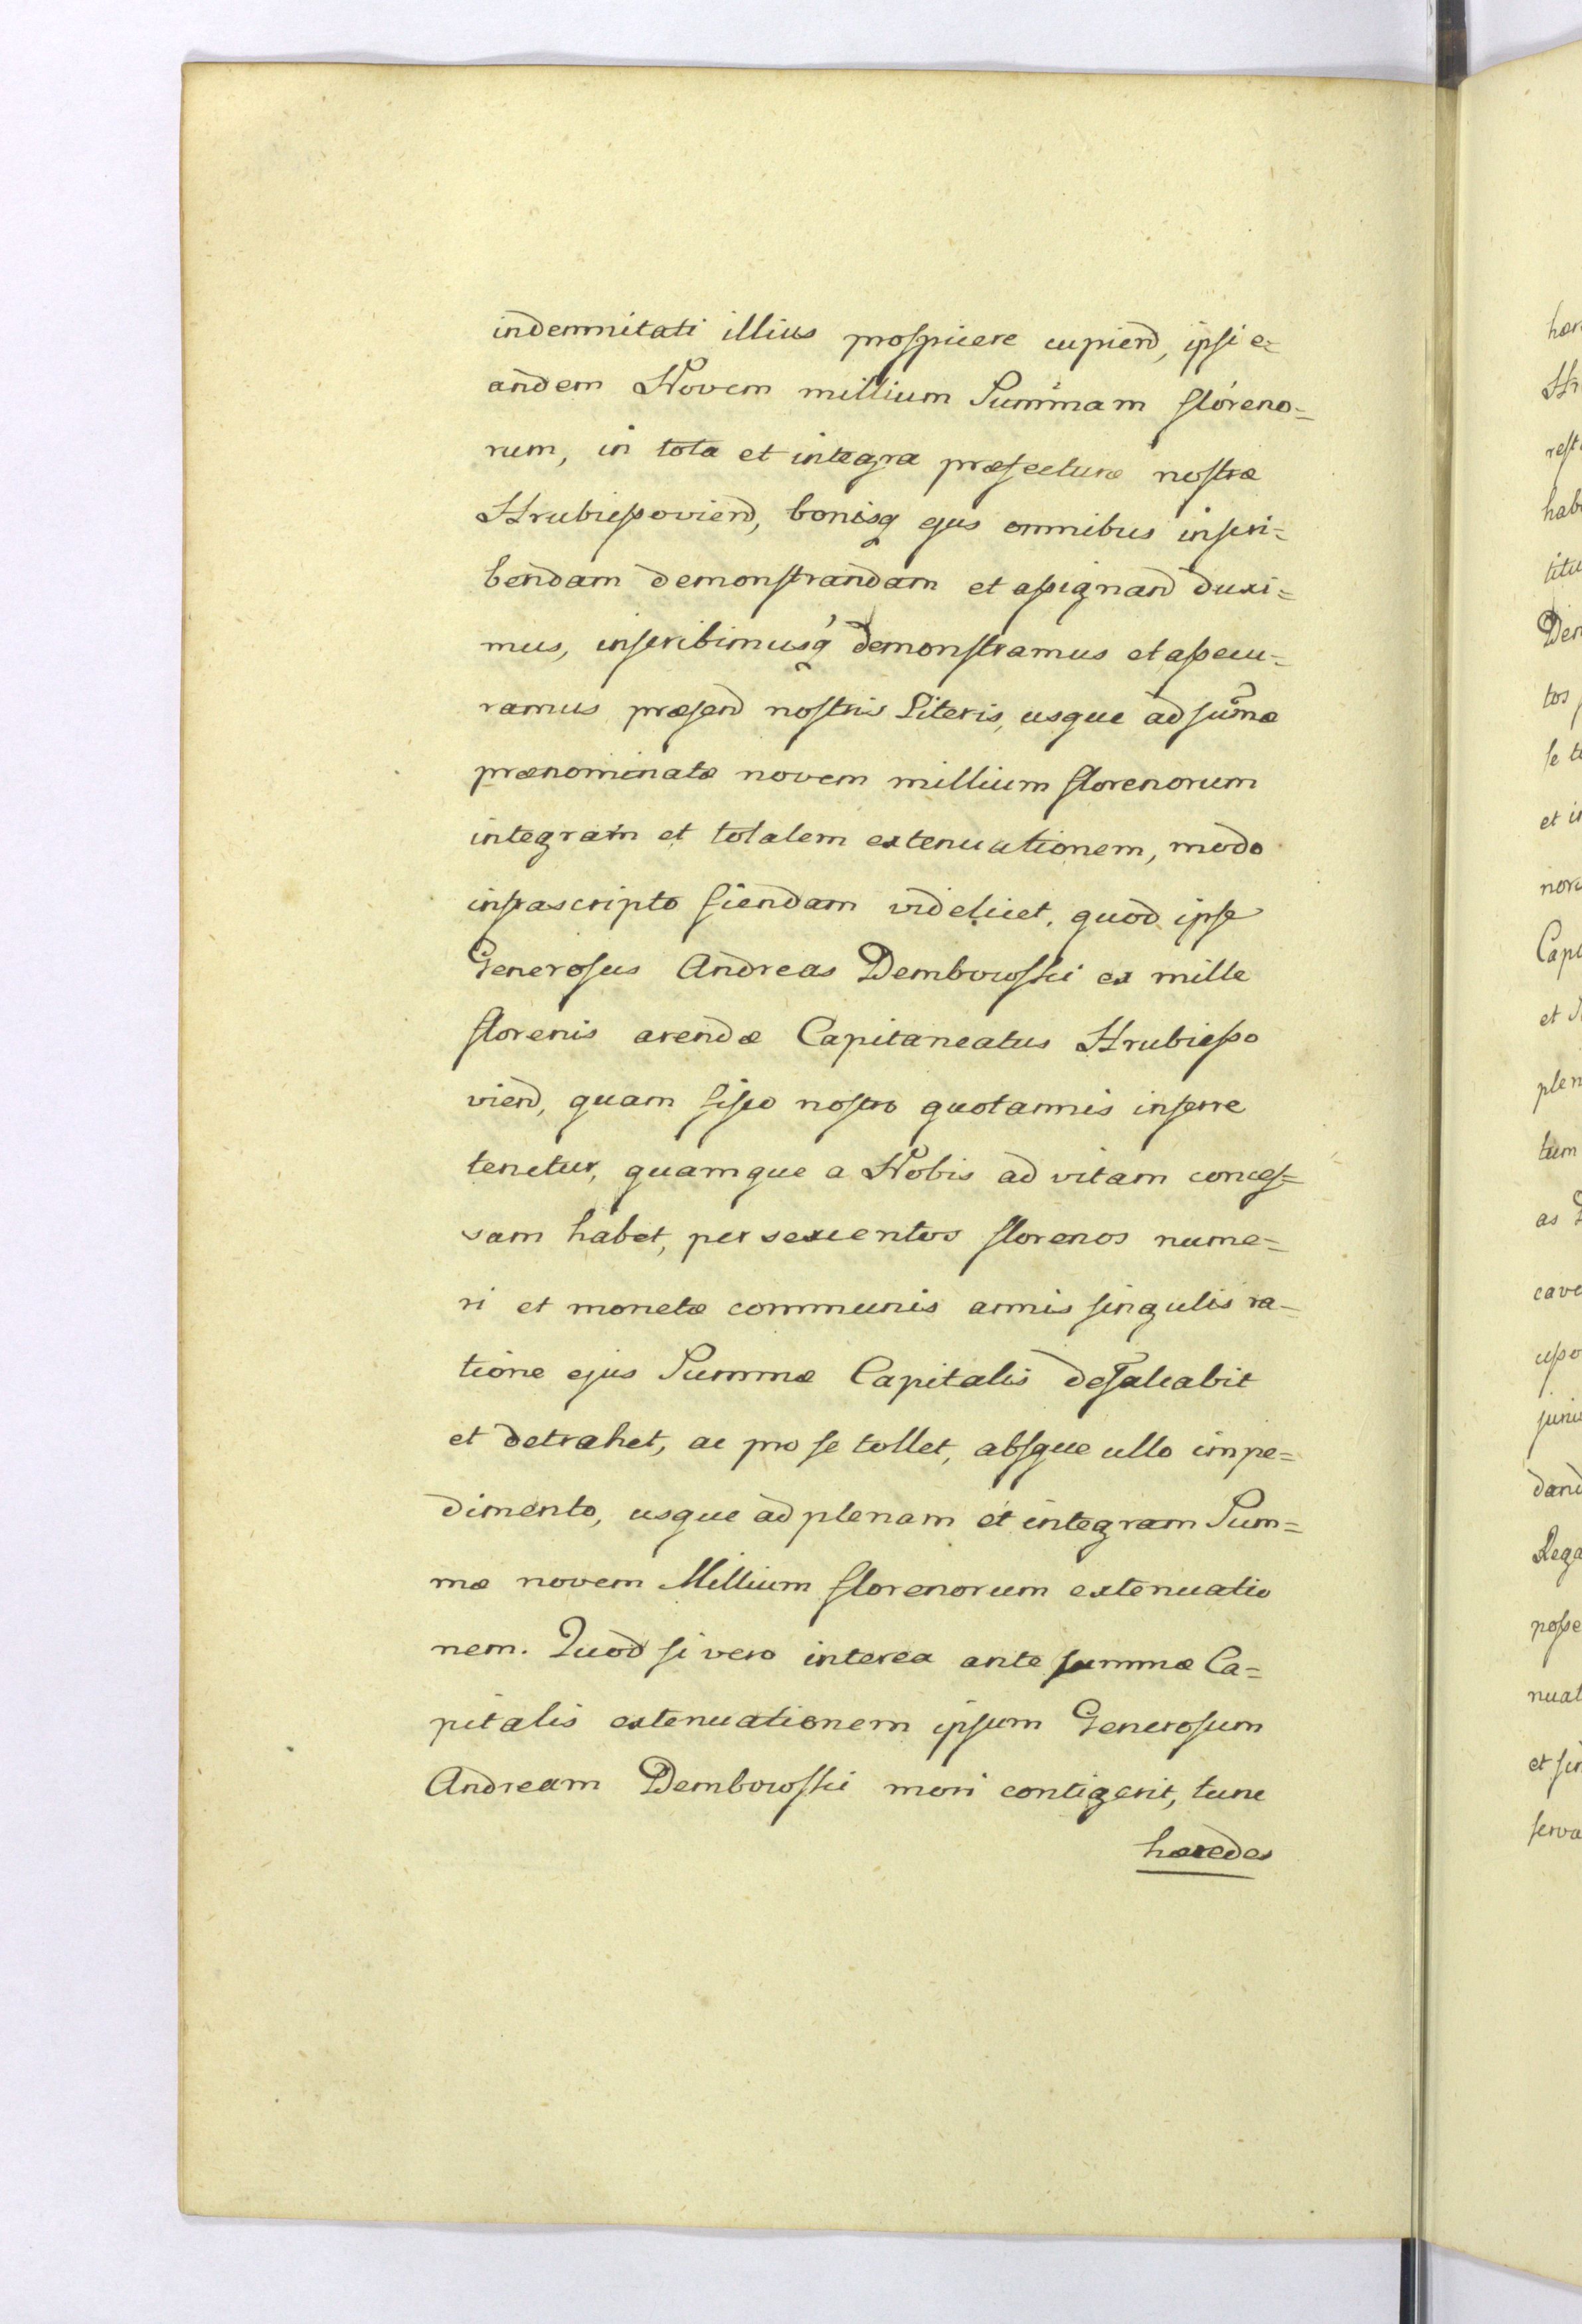 indemnitati illius prospicere cupiend, ipsi e=
andem Novem millium Summam floreno=
rum, in tota et integra præfectura nostra
Hrubiessoviend, bonisq ejus omnibus inscri=
bendam demonstrandam et assignand duxi=
mus, inscribimusq demonstramus et assecu=
ramus præsend nostris Literis, usque ad sumæ
prænominatæ novem millium florenorum
integram et totalem extenuationem, modo
infrascripto fiendam videlicet, quod ipse
Generosus Andreas Dembowski ex mille
florenis arendæ Capitaneatus Hrubiesso
viend, quam fisco nostro quotannis inferre
tenetur, quamque a Nobis ad vitam conces=
sam habet, per sexcentos florenos nume=
ri et monetæ communis annis singulis ra=
tione ejus Summæ Capitalis defalcabit
et detrahet, ac pro se tollet, absque ullo impe=
dimento, usque ad plenam et integram Sum=
mæ novem Millium florenorum extenuatio
nem. Quod si vero interea ante summæ Ca=
pitalis extenuationem ipsum Generosum
Andream Dembowski mori contigerit, tunc
hæredes